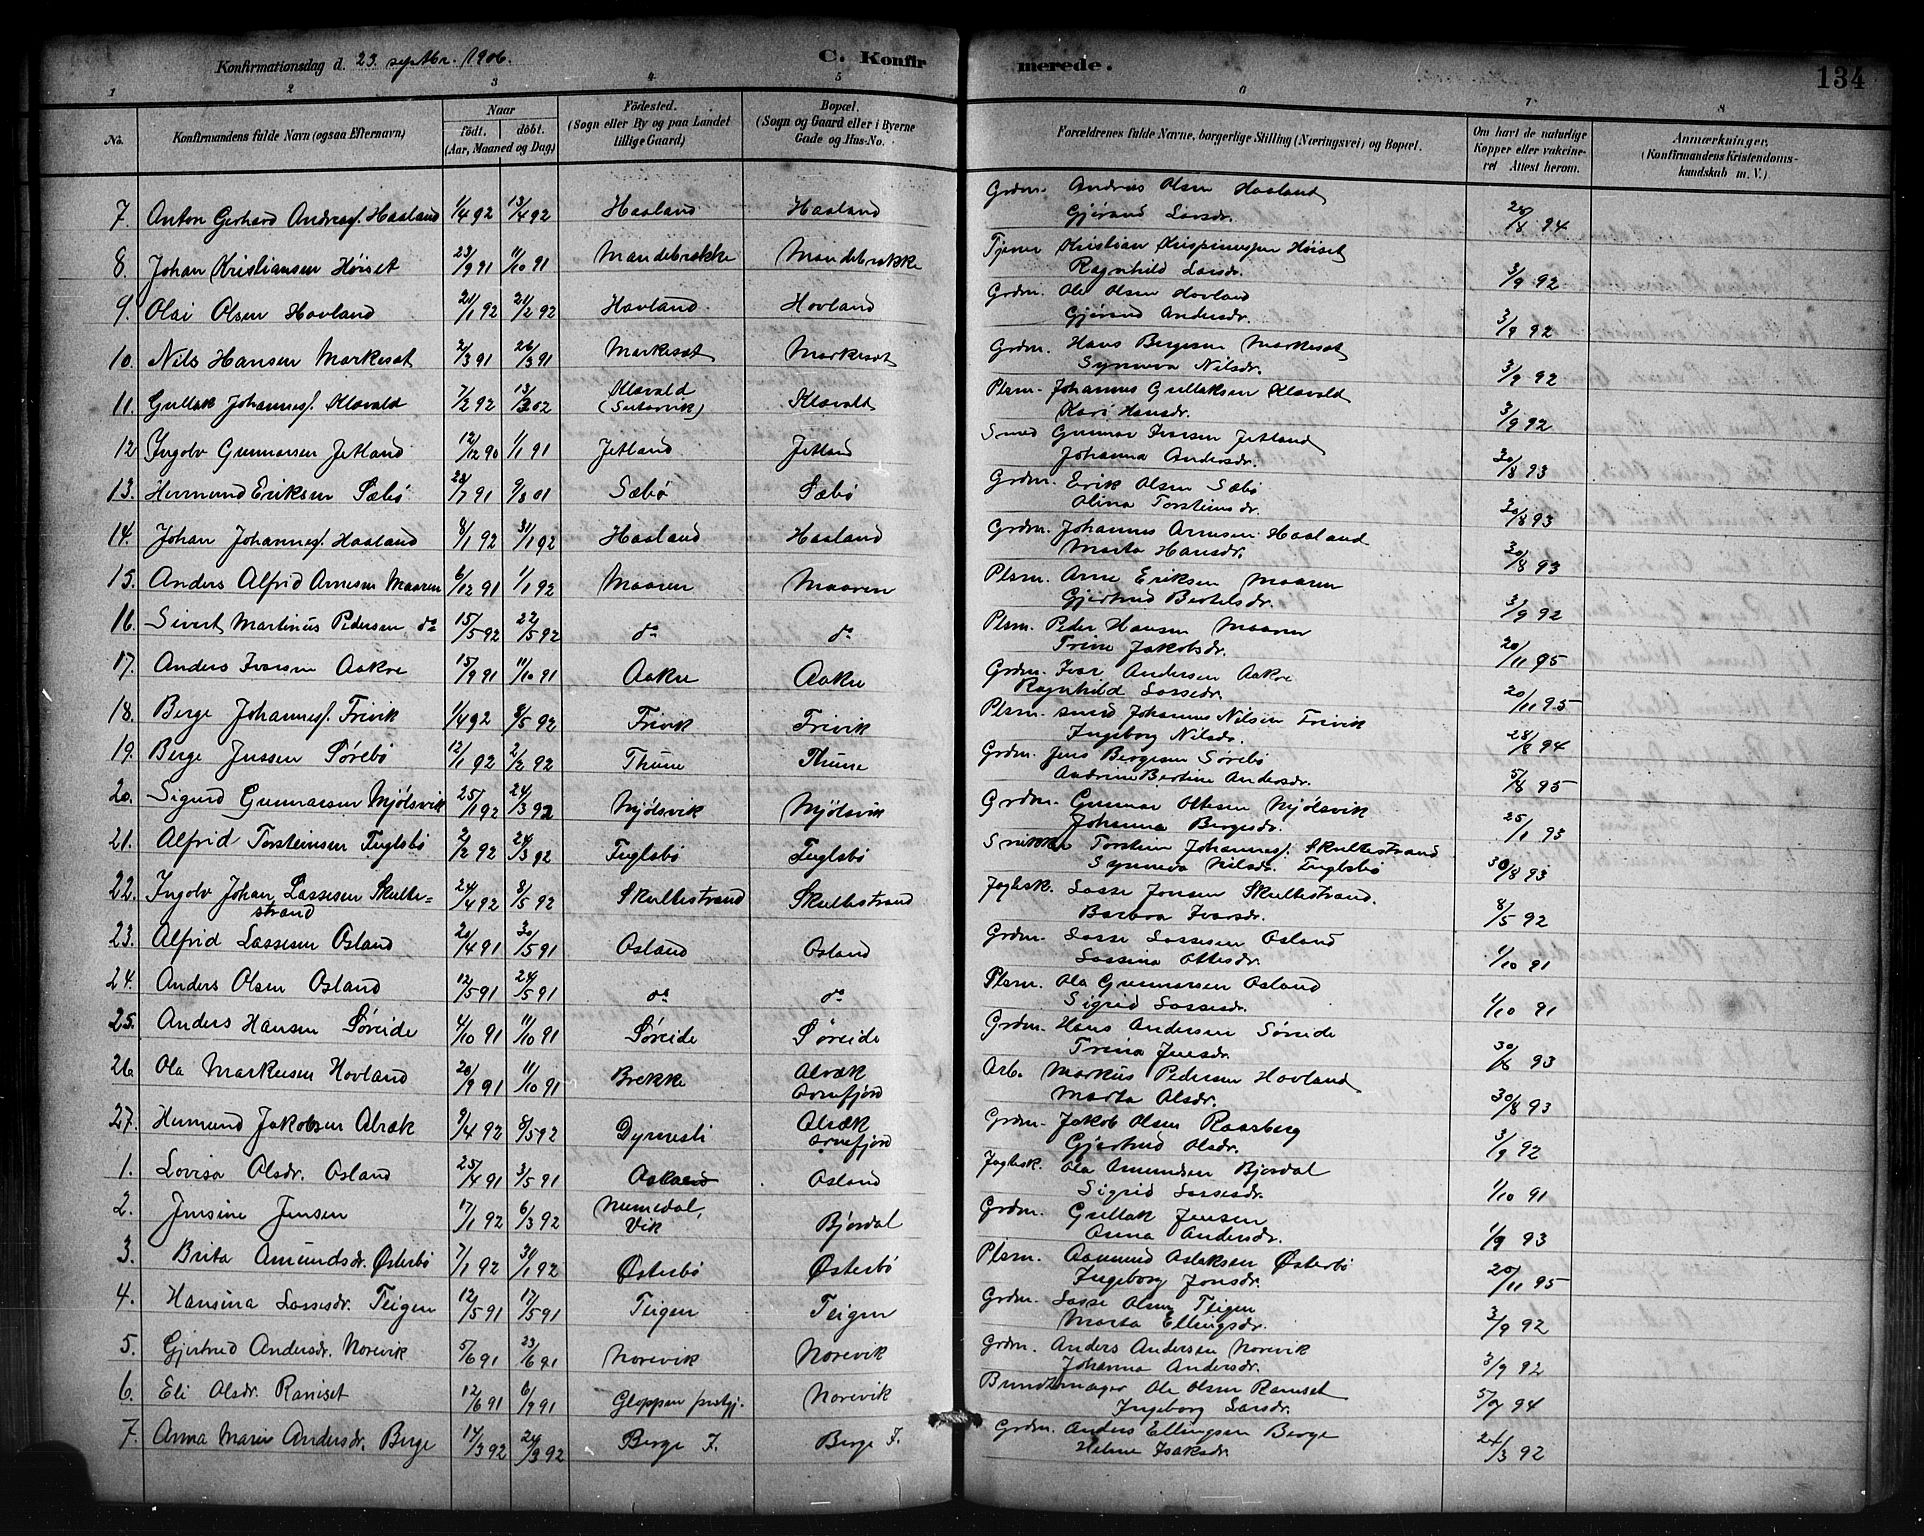 Konfirmationsdag d. 23. septbr. 1906. C. Konfirmerede. 134
1 2 3 4 5 6 7 8
No. Konfirmandens fulde Navn (ogsaa Efternavn) Naar födt. döbt. (Aar, Maaned og Dag) Födested. (Sogn eller By og paa Landet tillige Gaard) Bopæl. (Sogn og Gaard eller i Byerne Gade og Hus-No. Forældrenes fulde Navne, borgerlige Stilling (Næringsvei) og Bopæl. Om havt de naturlige Kopper eller vakcineret Attest herom. Anmærkninger. (Konfirmandens Kristendomskundskab m. V.)
7. Anton Gerhard Andreasf. Haaland 1/4 92 13/4 92 Haaland Haaland Grdm. Andreas Olsen Haaland
Gjørand Larsdr. 28/8 94
8. Johan Kristiansen Høiset 23/9 91 11/10 91 Mandebrække Mandebrække Tjener Kristian Krispinussen Høiset
Ragnhild Larsdr. 3/9 92
9. Olai Olsen Hovland 21/1 92 21/2 92 Hovland Hovland Grdm. Ole Olsen Hovland
Gjørand Andersdr. 3/9 92
10. Nils Hansen Markeset 2/3 91 26/3 91 Markeset Markeset Grdm. Hans Bergesen Markeset
Synneva Nilsdr. 3/9 92
11. Gullak Johannesf. Klævold 7/2 92 13/3 02 Klævold Klævold Plsm. Johannes Gullaksen Klævold
Kari Hansdr. 3/9 92
12 Ingolv Gunnarsen Jetland 12/12 90 1/1 91 Jetland Jetland Smed Gunnar Ivarsen Jetland
Johanna Andersdr. 30/8 93
13. Hermund Eriksen Sæbø 28/7 91 9/8 01 Sæbø Sæbø Grdm. Erik Olsen Sæbø
Olina Torsteinsdr. 30/8 93
14. Johan Johannesf. Haaland 8/1 92 31/1 92 Haaland Haaland Grdm. Johannes Arnesen Haaland
Marta Hansdr. 30/8 93
15. Anders Alfrid Arnesen Maaren 6/12 91 1/1 92 Maaren Maaren Plsm. Arne Eriksen Maaren
Gjertrud Bertelsdr. 3/9 92
16. Sivert Martinus Pedersen do 15/5 92 22/5 92 do do Plsm. Peder Hansen Maaren
Trine Jakobsdr. 20/11 95
17. Anders Ivarsen Aakre 15/9 91 11/10 91 Aakre Aakre Grdm. Ivar Andersen Aakre
Ragnhild Lassedr. 20/11 95
18. Berge Johannesf. Trivik 1/4 92 8/5 92 Trivik Trivik Plsm. smed Johannes Nilsen Trivik
Ingeborg Nilsdr. 28/8 94
19. Berge Jensen Sørebø 12/1 92 2/2 92 Thune Thune Grdm. Jens Bergesen Sørebø
Andrine Bertine Andersdr. 5/8 95
20. Sigurd Gunnarsen Mjølsvik 25/1 92 24/3 92 Mjølsvik Mjølsvik Grdm. Gunnar Ottesen Mjølsvik
Johanna Bergesdr. 25/1 93
21. Alfrid Torsteinsen Fuglsbø 2/2 92 24/3 92 Fuglsbø Fuglsbø Snikker Torstein Johannesf. Skultestrand
Synneva Nilsdr. Fuglsbø 30/8 93
22. Ingolv Johan Lassesen Skulte= 24/4 92 8/5 92 Skultestrand Skultestrand Jaglsk. Lasse Jonsen Skultestrand.
strand Barbra Ivarsdr. 8/5 92
23. Alfrid Lassesen Osland 20/4 91 3/5 91 Osland Osland Grdm. Lasse Lassesen Osland
Lassina Ottesdr. 1/10 91
24. Anders Olsen Osland 12/5 91 24/5 91 do do Plsm. Ola Gunnarsen Osland
Sigrid Lassesdr. 1/10 91
25. Anders Hansen Søreide 4/10 91 11/10 91 Søreide Søreide Grdm. Hans Andersen Søreide
Trina Jensdr. 30/8 93
26 Ola Markusen Hovland 20/9 91 11/10 91 Brekke Alræk Arb. Markus Pedersen Hovland
Arnefjord Marta Olsdr. 30/8 93
27. Hermund Jakobsen Alræk 9/4 92 8/5 92 Dyrnesli Alræk Grdm. Jakob Olsen Raasberg
Arnefjord Gjertrud Olsdr. 3/9 92
1. Lovisa Olsdr. Osland 25/4 91 3/5 91 Osland Jaglsk. Ola Amundsen Bjordal
Sigrid Lassesdr. 1/10 91
2. Jensine Jensen 17/1 92 6/3 92 Numedal, Bjordal Grdm. Gullak Jensen
Vik Anna Andersdr. 1/9 93
3. Brita Amundsdr. Østerbø 7/1 92 31/1 92 Østerbø Østerbø Plsm. Aamund Aslaksen Østerbø
Ingeborg Jonsdr. 20/11 95
4. Hansina Lassesdr. Teigen 12/5 91 17/5 91 Teigen Teigen Grdm. Lasse Olsen Teigen
Marta Ellingsdr. 3/9 92
5. Gjertrud Andersdr. Norevik 5/6 91 23/6 91 Norevik Norevik Grdm. Anders Andersen Norevik
Johanna Andersdr. 3/9 92
6. Eli Olsdr. Ramset 12/6 91 6/9 91 Gloppen prstgj. Norevik Bundtmager Ole Olsen Ramset
Ingeborg Larsdr. 5/7 94
7. Anna Marie Andersdr. Berge 17/3 92 20/3 92 Berge I. Berge I. Grdm. Anders Ellingsen Berge
Helene Isaksdr. 24/3 92